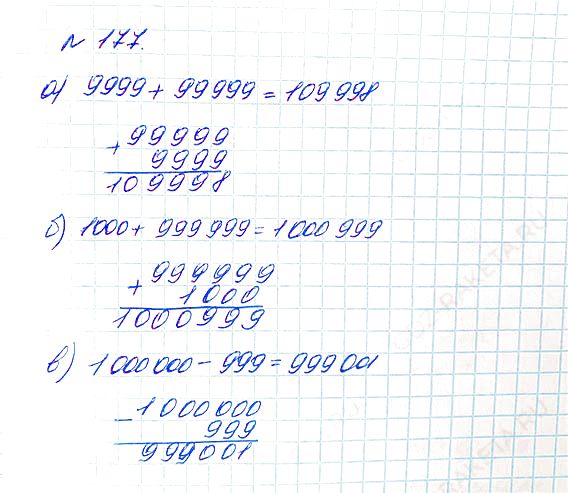 № 177.
а) 9999 + 99999 = 109998
+ 99999
9999
109998
б) 1000 + 999 999 = 1000 999
+ 999999
1000
1000999
в) 1 000 000 - 999 = 999 001
- 1000000
999
999001